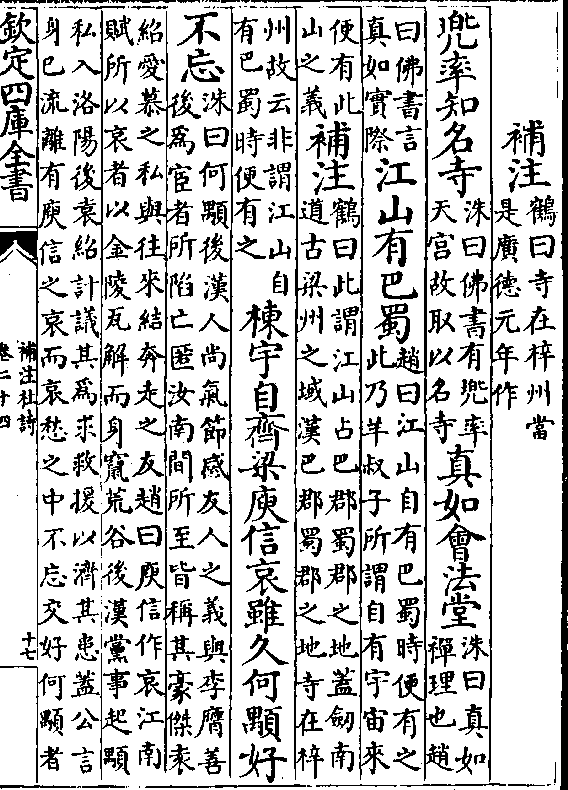 補注鶴曰寺在梓州當
是廣德元年作
兜率知名寺洙曰佛書有兜率
天宫故取以名寺真如會法堂洙曰真如
禪理也趙
曰佛書言
真如實際江山有巴蜀趙曰江山自有巴蜀時便有之
此乃羊叔子所謂自有宇宙來
便有此
山之義補注鶴曰此謂江山占巴郡蜀郡之地蓋劒南
道古梁州之域漢巴郡蜀郡之地寺在梓
州故云非謂江山自
有巴蜀時便有之棟宇自齊梁庾信哀雖久何顒好
不忘洙曰何顒後漢人尚氣節感友人之義與李膺善
後爲宦者所陷亡匿汝南間所至皆稱其豪傑袁
紹愛慕之私與往來結奔走之友趙曰庾信作哀江南
賦所以哀者以金陵瓦解而身竄荒谷後漢黨事起顒
私入洛陽後袁紹計議其爲求救援以濟其患蓋公言
身已流離有庾信之哀而哀愁之中不忘交好何顒者
欽定四庫全書
補注杜詩
卷二十四
十七